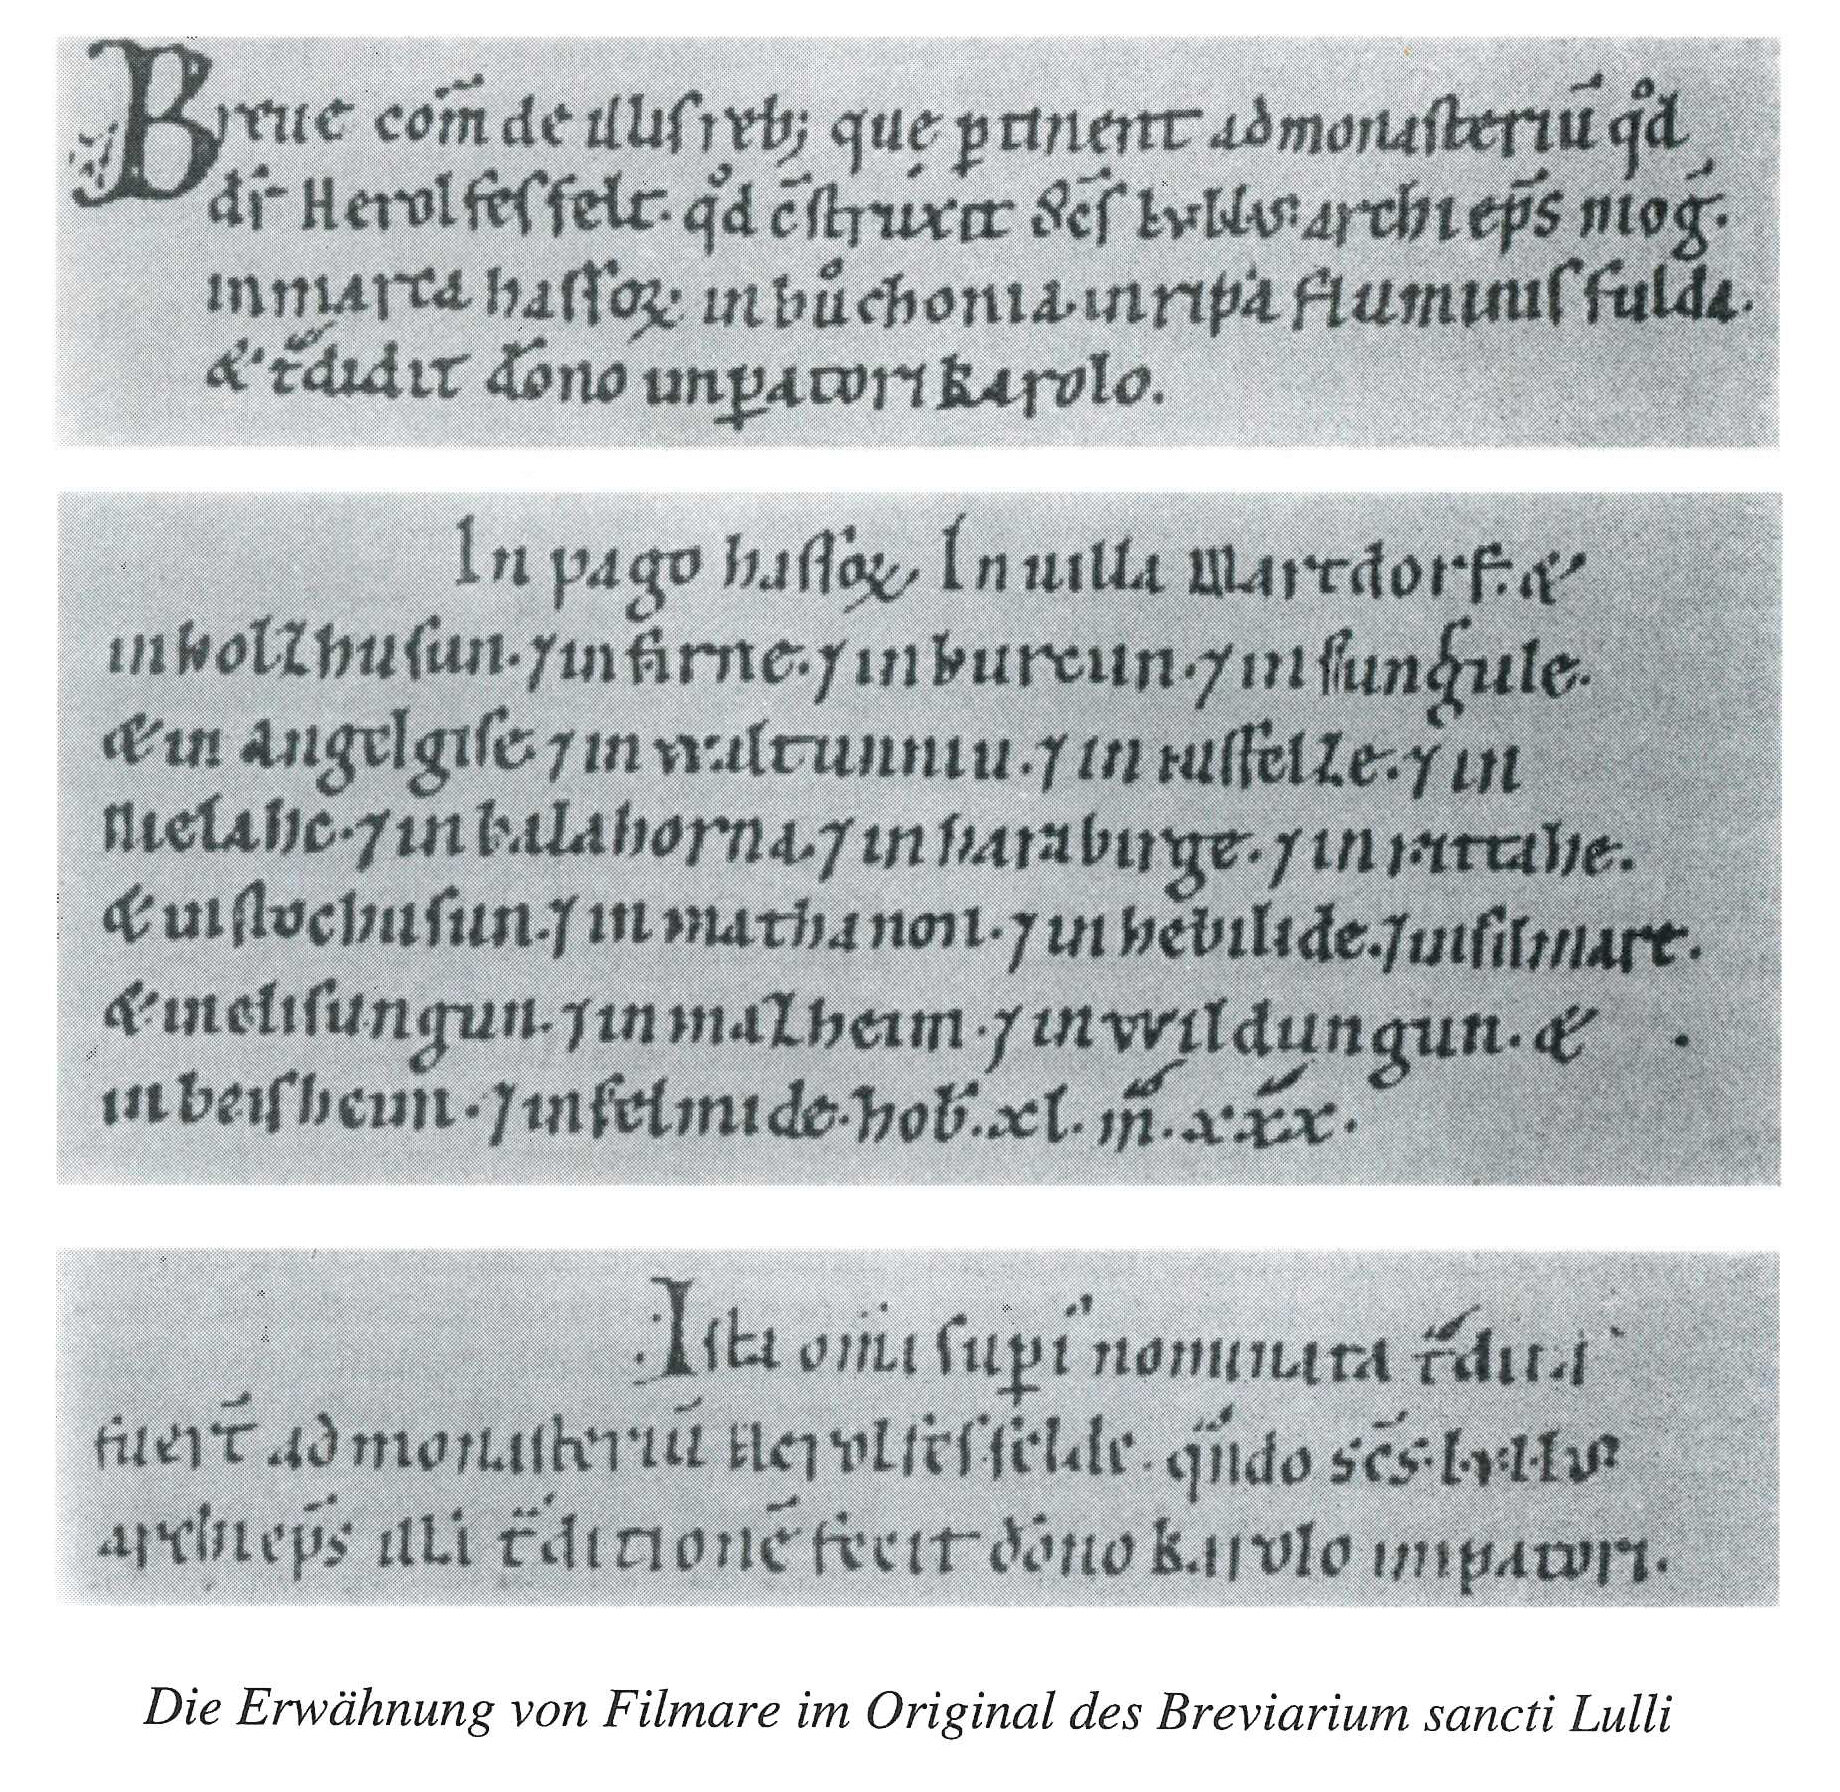 Breue com̄ de illis reb; que ꝑtinent ad monasteriū qd̊
dr̄ Herolfesfelt. qd̊ c̄struxit sc̄s Lullus archiep̄s moḡ.
in marca hassoꝝ in bůchonia in ripa fluminis fulda.
& t̄didit dōno inꝑatori karolo.
In pago hassoꝝ In uilla Martdorf. &
in holzhusun. ⁊ in firne. ⁊ in burcun. ⁊ in
& in angelgise ⁊ in waltunniu. ⁊ in ⁊ in
⁊ in balahorna. ⁊ in haraburge. ⁊ in rittahe.
& in stochusun. ⁊ in mathanon. ⁊ in hebilide. ⁊ in filmare.
& melisungun. ⁊ in malzheim. ⁊ in wildungun. &
in beisheim. ⁊ in felmide. hob̄. xl. m̄. xxx.
Ista om̄ia supͥ nominata t̄dita
fuer̄t ad monasteriū Herolfesfelde. qn̄do sc̄s Lullus
archiep̄s illi t̄ditionē fecit dōno karolo imꝑatori.
Die Erwähnung von Filmare im Original des Breviarium sancti Lulli